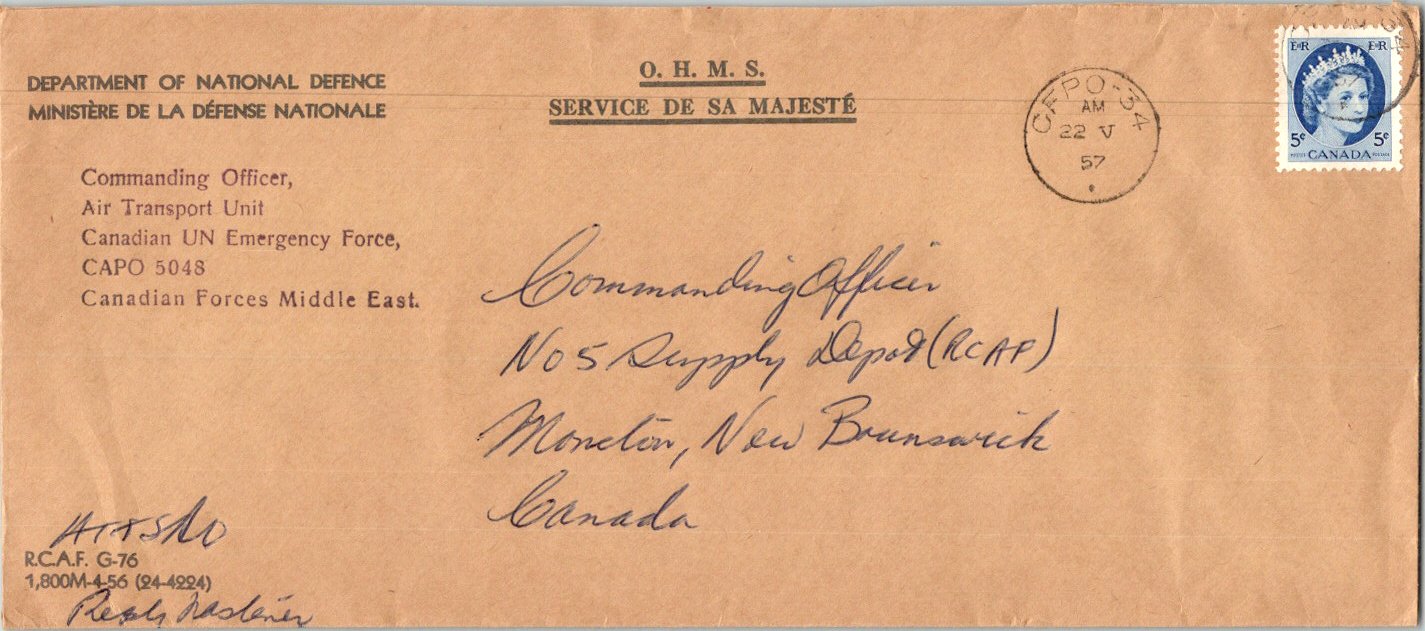 DEPARTMENT OF NATIONAL DEFENCE
MINISTÈRE DE LA DÉFENSE NATIONALE
O. H. M. S.
SERVICE DE SA MAJESTÉ
CFPO-34
AM
22 V
57
E R E R
5¢ 5¢
POSTES CANADA POSTAGE
Commanding Officer,
Air Transport Unit
Canadian UN Emergency Force,
CAPO 5048
Canadian Forces Middle East.
Commanding Officer
No 5 Supply Depot (RCAF)
Moncton, New Brunswick
Canada
R.C.A.F. G-76
1,800M-4-56 (24-4224)